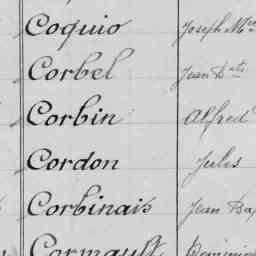 Coquio Joseph
Corbel Jean Bte
Corbin Alfred
Cordon Jules
Corbinais Jean
Cormault